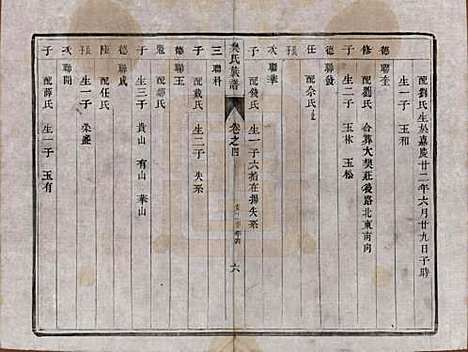 配劉氏生於嘉慶廿二年六月廿九日子時
生一子 玉和
德聯奎
修 配劉氏 合葬大契莊後路北東南向
生二子 玉林 玉松
德聯發
任 配余氏
長
次聯華
子 配錢氏 生一子六指在揚失系
吳氏族譜 卷之四 六
三聯科
子 配戴氏 生二子 失系
德聯玉
生三子 貴山 有山 華山
德聯成
陸 配任氏
長 生一子 朵
次聯開
子 配薛氏 生一子 玉有